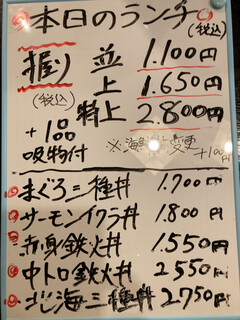 本日のランチ
(税込)
握り 並 1.100円
上 1.650円
(税込) 特上 2.800円
+1品
吸物付
変更
+100円
まぐろ三種丼 1.700円
サーモンイクラ丼 1.800円
赤身鉄火丼 1.550円
中トロ鉄火丼 2550円
北海三種丼 2750円